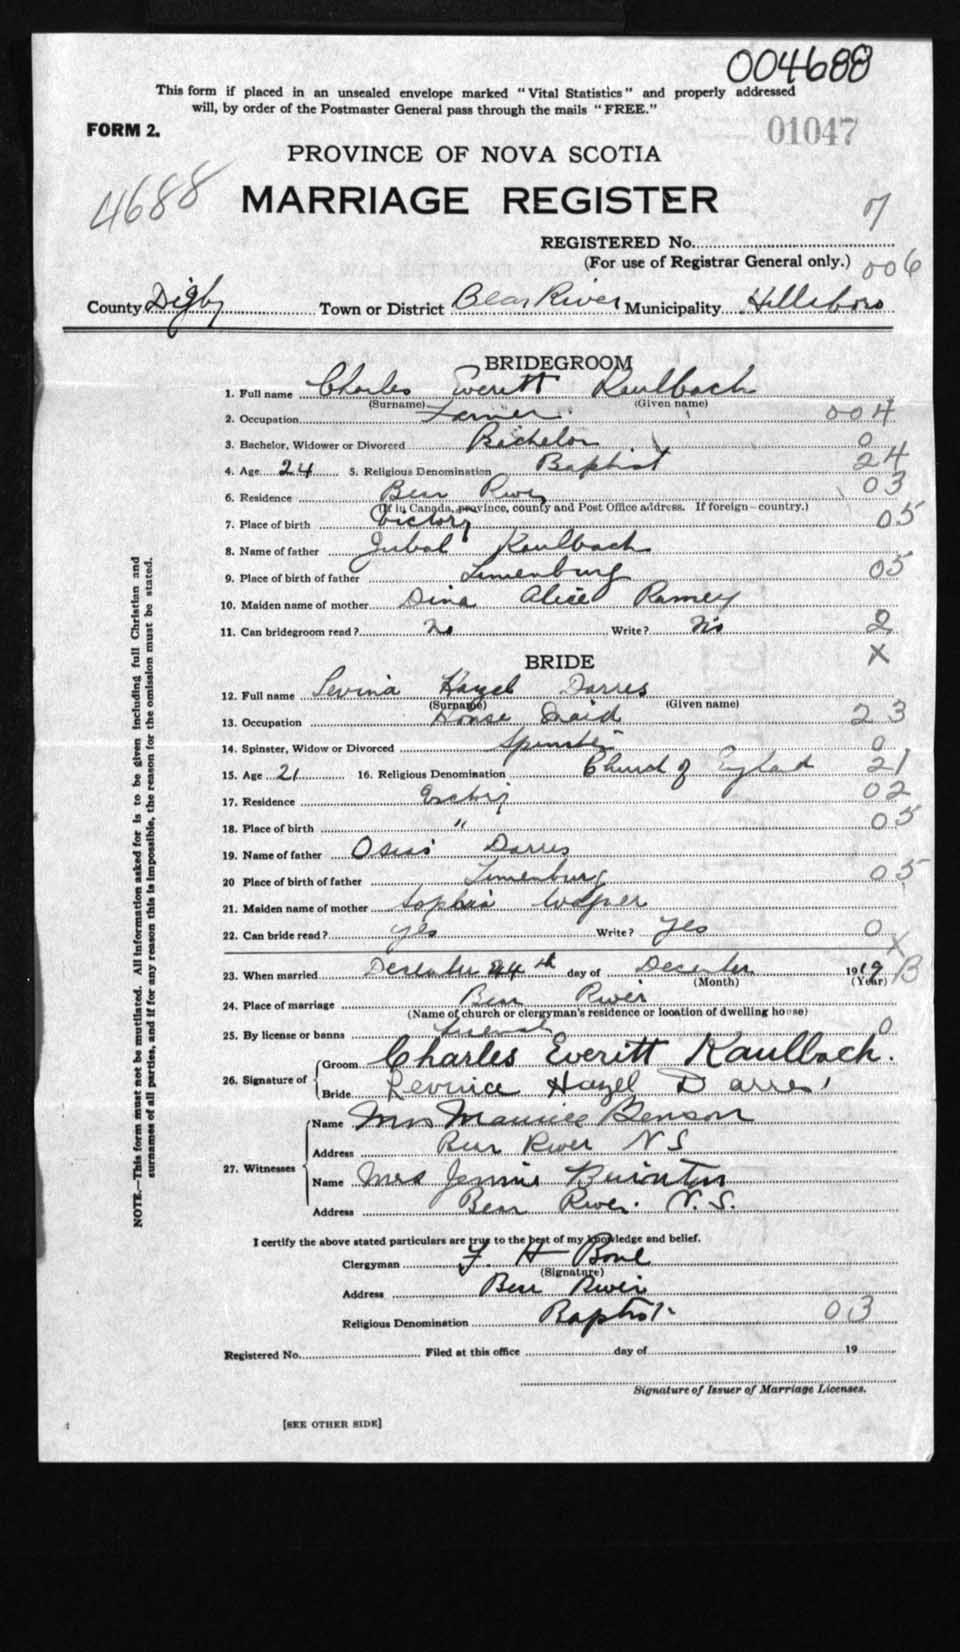 004688
This form if placed in an unsealed envelope marked "Vital Statistics" and properly addressed
will, by order of the Postmaster General pass through the mails "FREE."
FORM 2.
01047
PROVINCE OF NOVA SCOTIA
4688
MARRIAGE REGISTER
7
REGISTERED No.
(For use of Registrar General only.) 006
County Digby Town or District Bear River Municipality Hillsboro
BRIDEGROOM
1. Full name Charles Everitt Kaulbach
(Surname) (Given name)
2. Occupation Farmer 004
3. Bachelor, Widower or Divorced Bachelor 0
4. Age 24 5. Religious Denomination Baptist 24
6. Residence Bear River 03
(If in Canada, province, county and Post Office address. If foreign—country.)
7. Place of birth Victory 05
8. Name of father Jubal Kaulbach
9. Place of birth of father Lunenburg 05
10. Maiden name of mother Dina Alice Ramey
11. Can bridegroom read? No Write? No 2
X
BRIDE
12. Full name Levina Hazel Darres
(Surname) (Given name)
13. Occupation House Maid 23
14. Spinster, Widow or Divorced Spinster 0
15. Age 21 16. Religious Denomination Church of England 21
17. Residence 02
18. Place of birth " 05
19. Name of father Darres
20 Place of birth of father Lunenburg 05
21. Maiden name of mother Sophia
22. Can bride read? yes Write? yes 0
X
23. When married December 24th day of December 1919 B
(Month) (Year)
24. Place of marriage Bear River
(Name of church or clergyman's residence or location of dwelling house)
25. By license or banns 0
26. Signature of Groom Charles Everitt Kaulbach.
Bride Hazel Darres
27. Witnesses Name Mrs Maurice Benson
Address Bear River N S
Name Mrs Jennie
Address Bear River. N. S.
I certify the above stated particulars are true to the best of my knowledge and belief.
Clergyman F. H.
(Signature)
Address Bear River
Religious Denomination Baptist 03
Registered No. Filed at this office day of 19
Signature of Issuer of Marriage Licenses.
[SEE OTHER SIDE]
NOTE.—This form must not be mutilated. All information asked for is to be given including full Christian and
surnames of all parties, and if for any reason this is impossible, the reason for the omission must be stated.